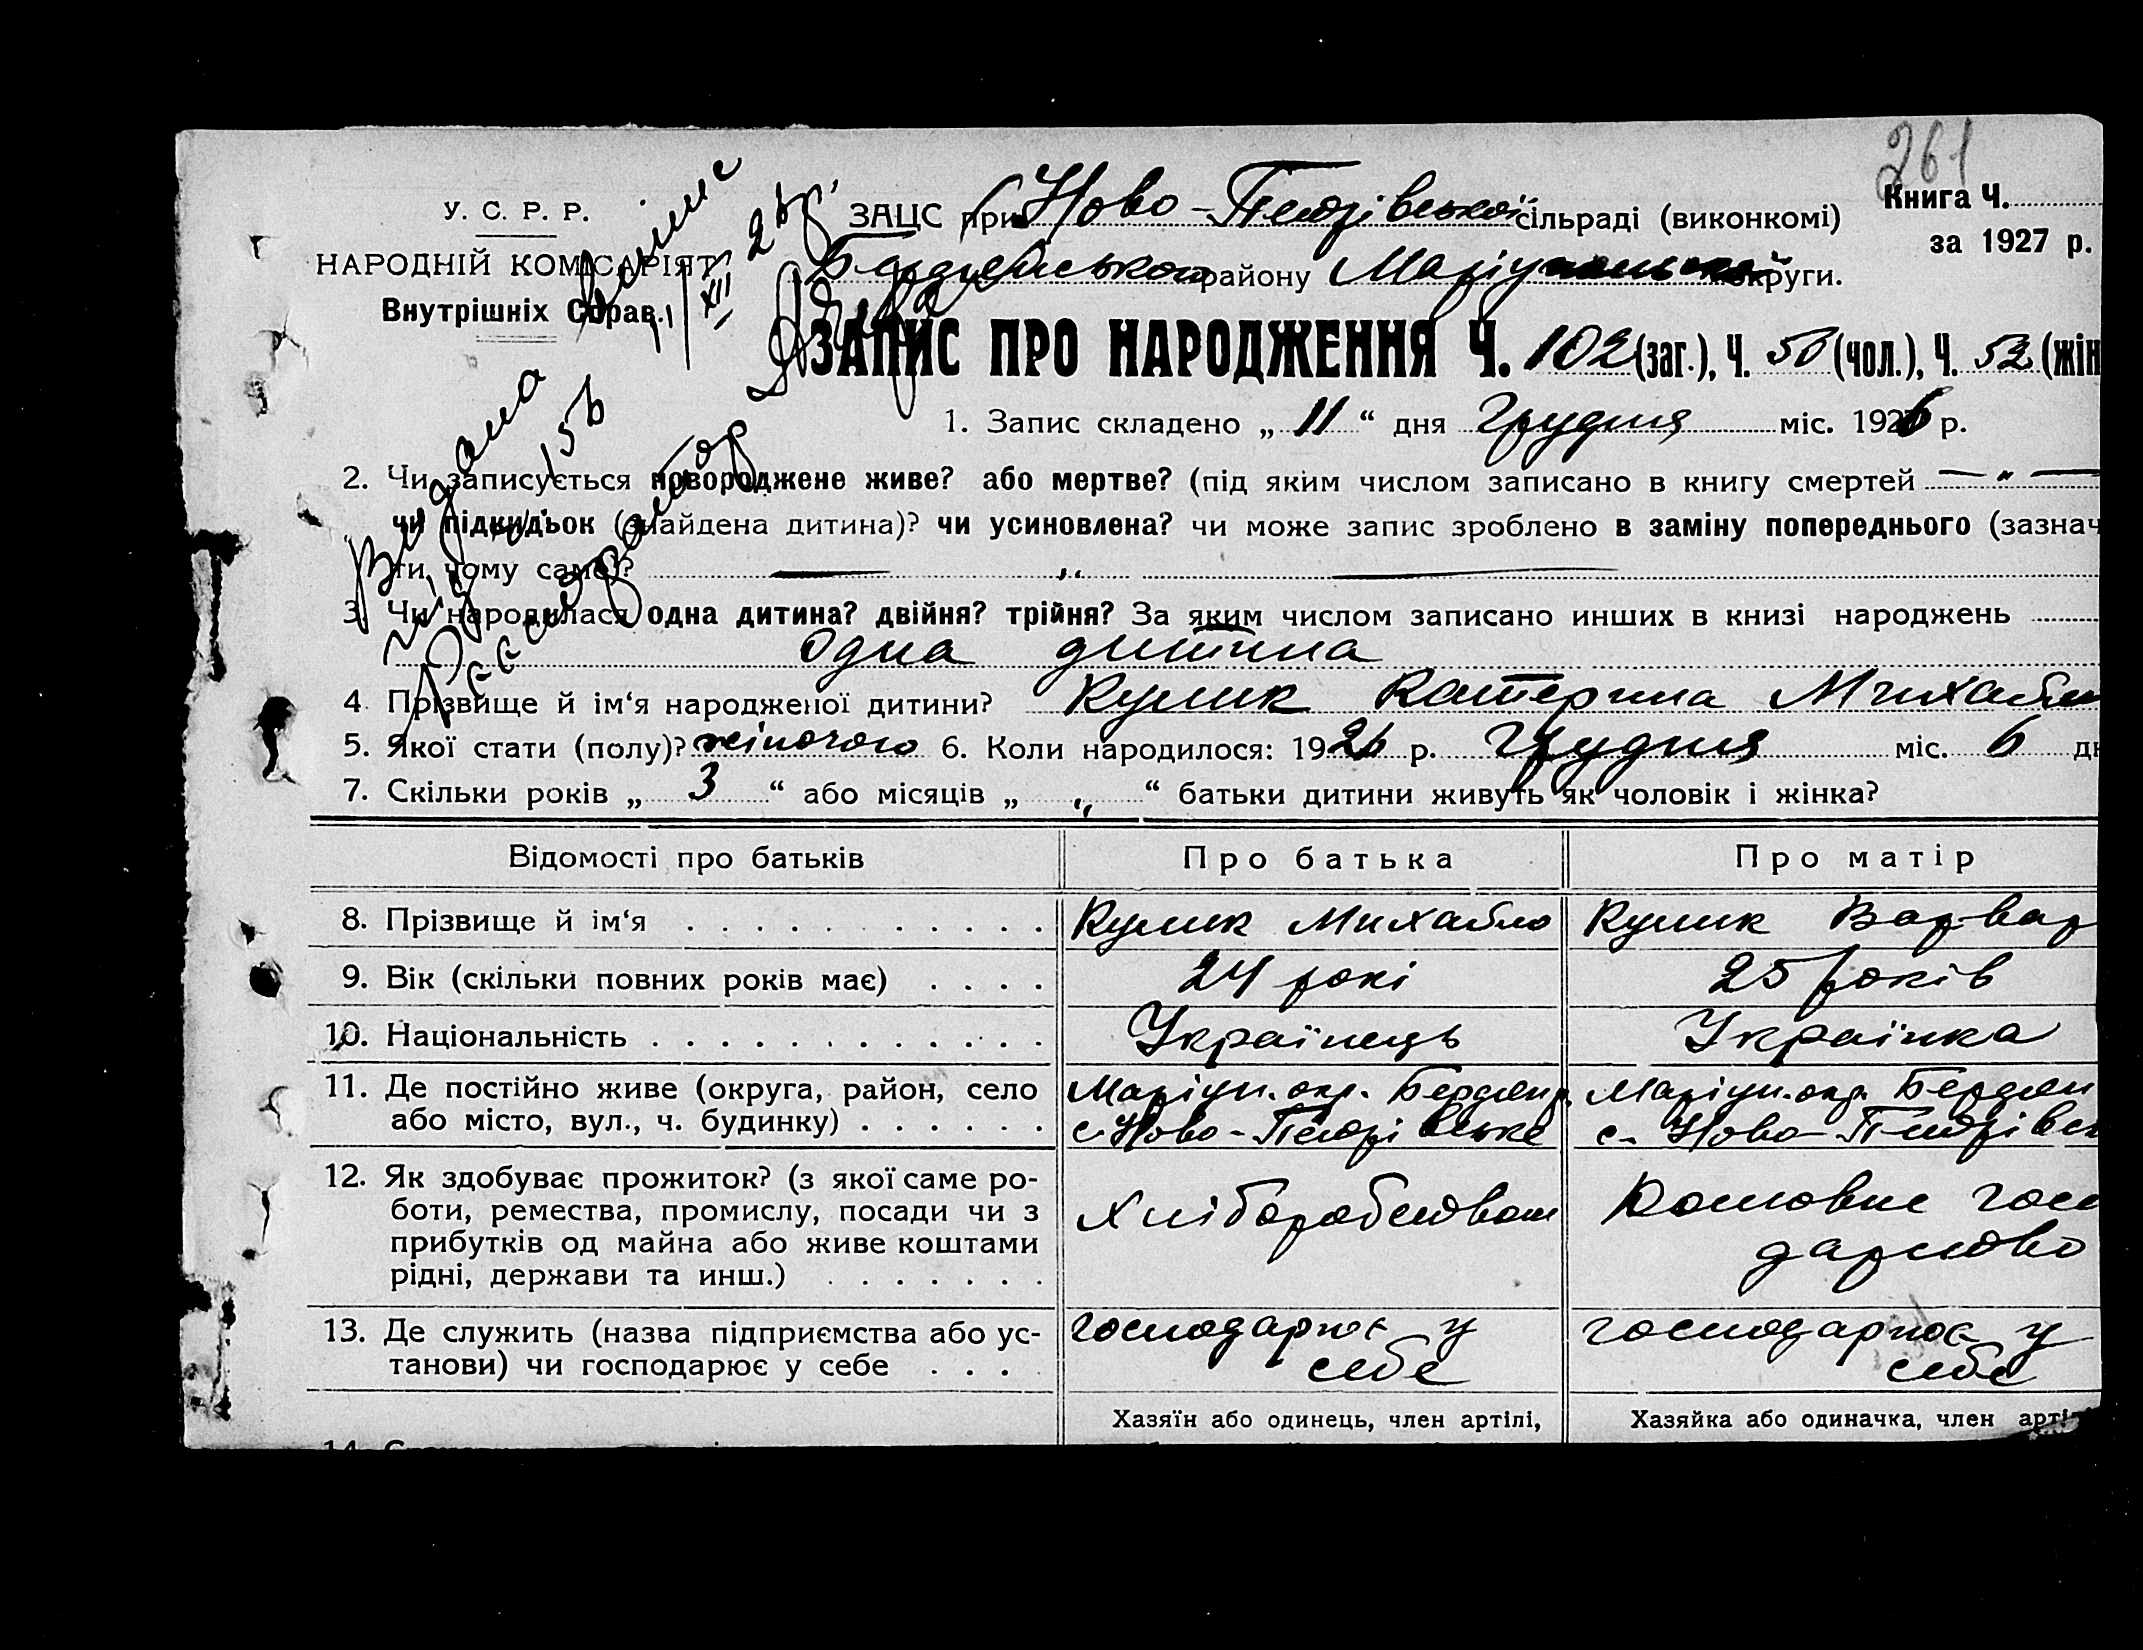 261
У. С. Р. Р.
НАРОДНІЙ КОМІСАРІЯТ
Внутрішніх Справ.
ЗАЦС при Ново-Петрівської сільраді (виконкомі)
Книга Ч.
за 1927 р.
Бердянського району Маріупольської округи.
ЗАПИС ПРО НАРОДЖЕННЯ Ч. 102 (заг.), Ч. 50 (чол.), Ч. 52 (жін
1. Запис складено „ 11 “ дня Грудня міс. 1926 р.
Видана
156
11/XII 26 р.
Реєстратор
2. Чи записується новороджене живе? або мертве? (під яким числом записано в книгу смертей — „ —
чи підкидьок (знайдена дитина)? чи усиновлена? чи може запис зроблено в заміну попереднього (зазнач
ти чому саме)? — „ —
3. Чи народилася одна дитина? двійня? трійня? За яким числом записано инших в книзі народжень
одна дитина
4. Прізвище й ім‘я народженої дитини? Кулик Катерина Михайл
5. Якої стати (полу)? жіночого 6. Коли народилося: 1926 р. Грудня міс. 6 дн
7. Скільки років „ 3 “ або місяців „ „ “ батьки дитини живуть як чоловік і жінка?
Відомості про батьків Про батька Про матір
8. Прізвище й ім‘я Кулик Михайло Кулик Варвар
9. Вік (скільки повних років має) 24 рокі 25 років
10. Національність Українець Українка
11. Де постійно живе (округа, район, село Маріуп. окр. Бердян р. Маріуп. окр. Бердян
або місто, вул., ч. будинку) с. Ново-Петрівське с. Ново-Петрівсь
12. Як здобуває прожиток? (з якої саме ро-
боти, ремества, промислу, посади чи з Хліборобством Домовне госп
прибутків од майна або живе коштами дарство
рідні, держави та инш.)
13. Де служить (назва підприємства або ус- господарює у господарює у
танови) чи господарює у себе себе себе
Хазяїн або одинець, член артілі, Хазяйка або одиначка, член арті